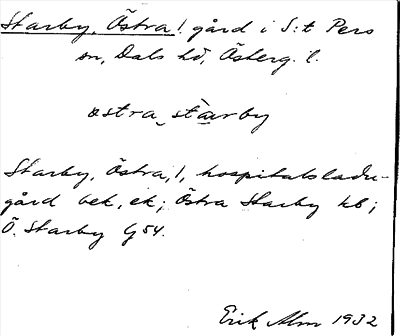 Starby, Östra, l. gård i S:t Pers
sn, Dals hd, Österg. l.
östra stàrby
Starby, Östra, l, hospitalsladu-
gård bek, ek; Östra Starby kb;
Ö. Starby G54.
Erik Alm 1932